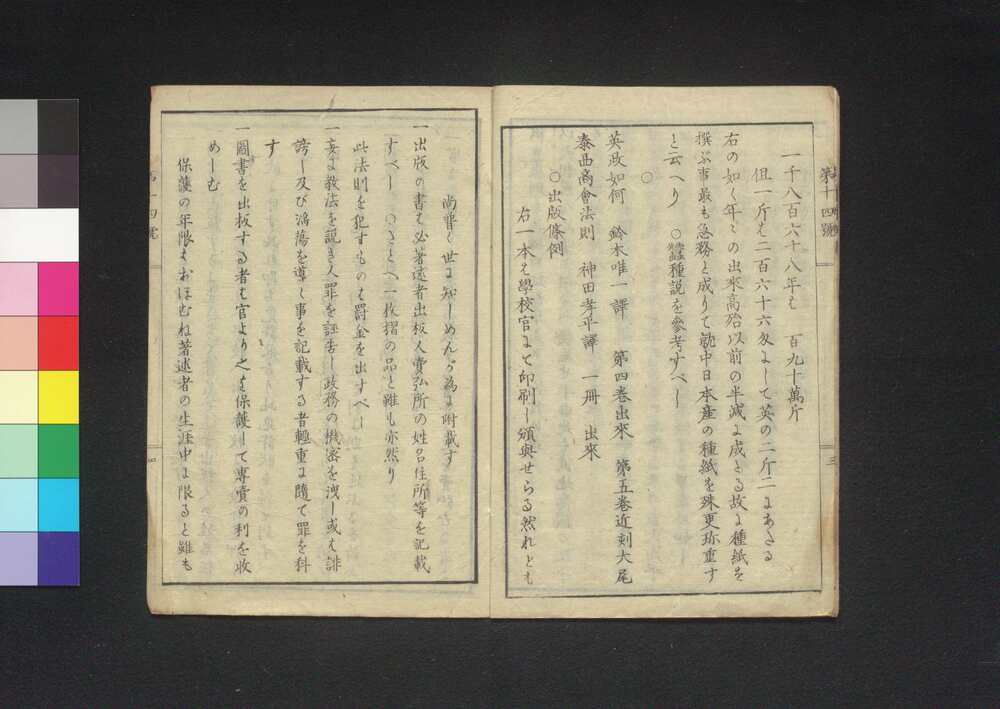 第十四號
一千八百六十八年も 百九十萬斤
但一斤も二百六十六匁よして英の二斤二よあさる
右の如く年々の出來高殆以前の半減よ成とる故よ種紙を
撰ぶ事最も急務と成りて就中日本産の種紙を殊更珎重す
と云へり ○蠶種説を參考すべし
○
英政如何 鈴木唯一譯 第四巻出來 第五巻近刻大尾
泰西商會法則 神田孝平譯 一冊 出來
○出版條例
右一本も學校官よて印刷し頒與せらる然れとも
三
尚普く世よ知しめんが為よ附載す
一出版の書も必著述者出板人賣弘所の姓名住所等を記載
すべし ○さとへ一枚摺の品と雖も亦然り
此法則を犯すものも罸金を出すべし
一妄よ教法を説き人罪を誣告し政務の機密を洩し或も誹
謗し及び淫蕩を導く事を記載する者輕重よ隨て罪を科
す
一圖書を出板する者も官より之を保護して專賣の利を收
めしむ
保護の年限もおほむね著述者の生涯中よ限ると雖も
第十四號
四